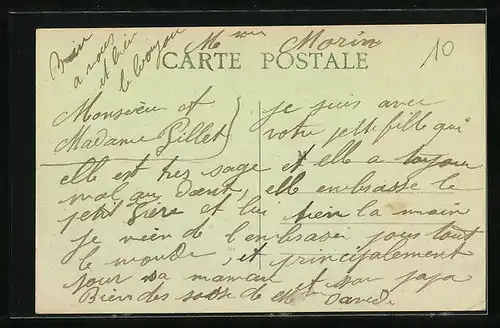 Bien
a vous
et bien
le
Mme Morin
10
CARTE POSTALE
Monsieur et
Madame Gillet
je suis avec
votre petite fille qui
elle est tres sage et elle a toujour
mal au dent, elle enbrasse le
petit frère et lui tien la main
je vien de l'enbraser pous tout
le monde, et principalement
pour sa maman et son papa
Bien des de Mme